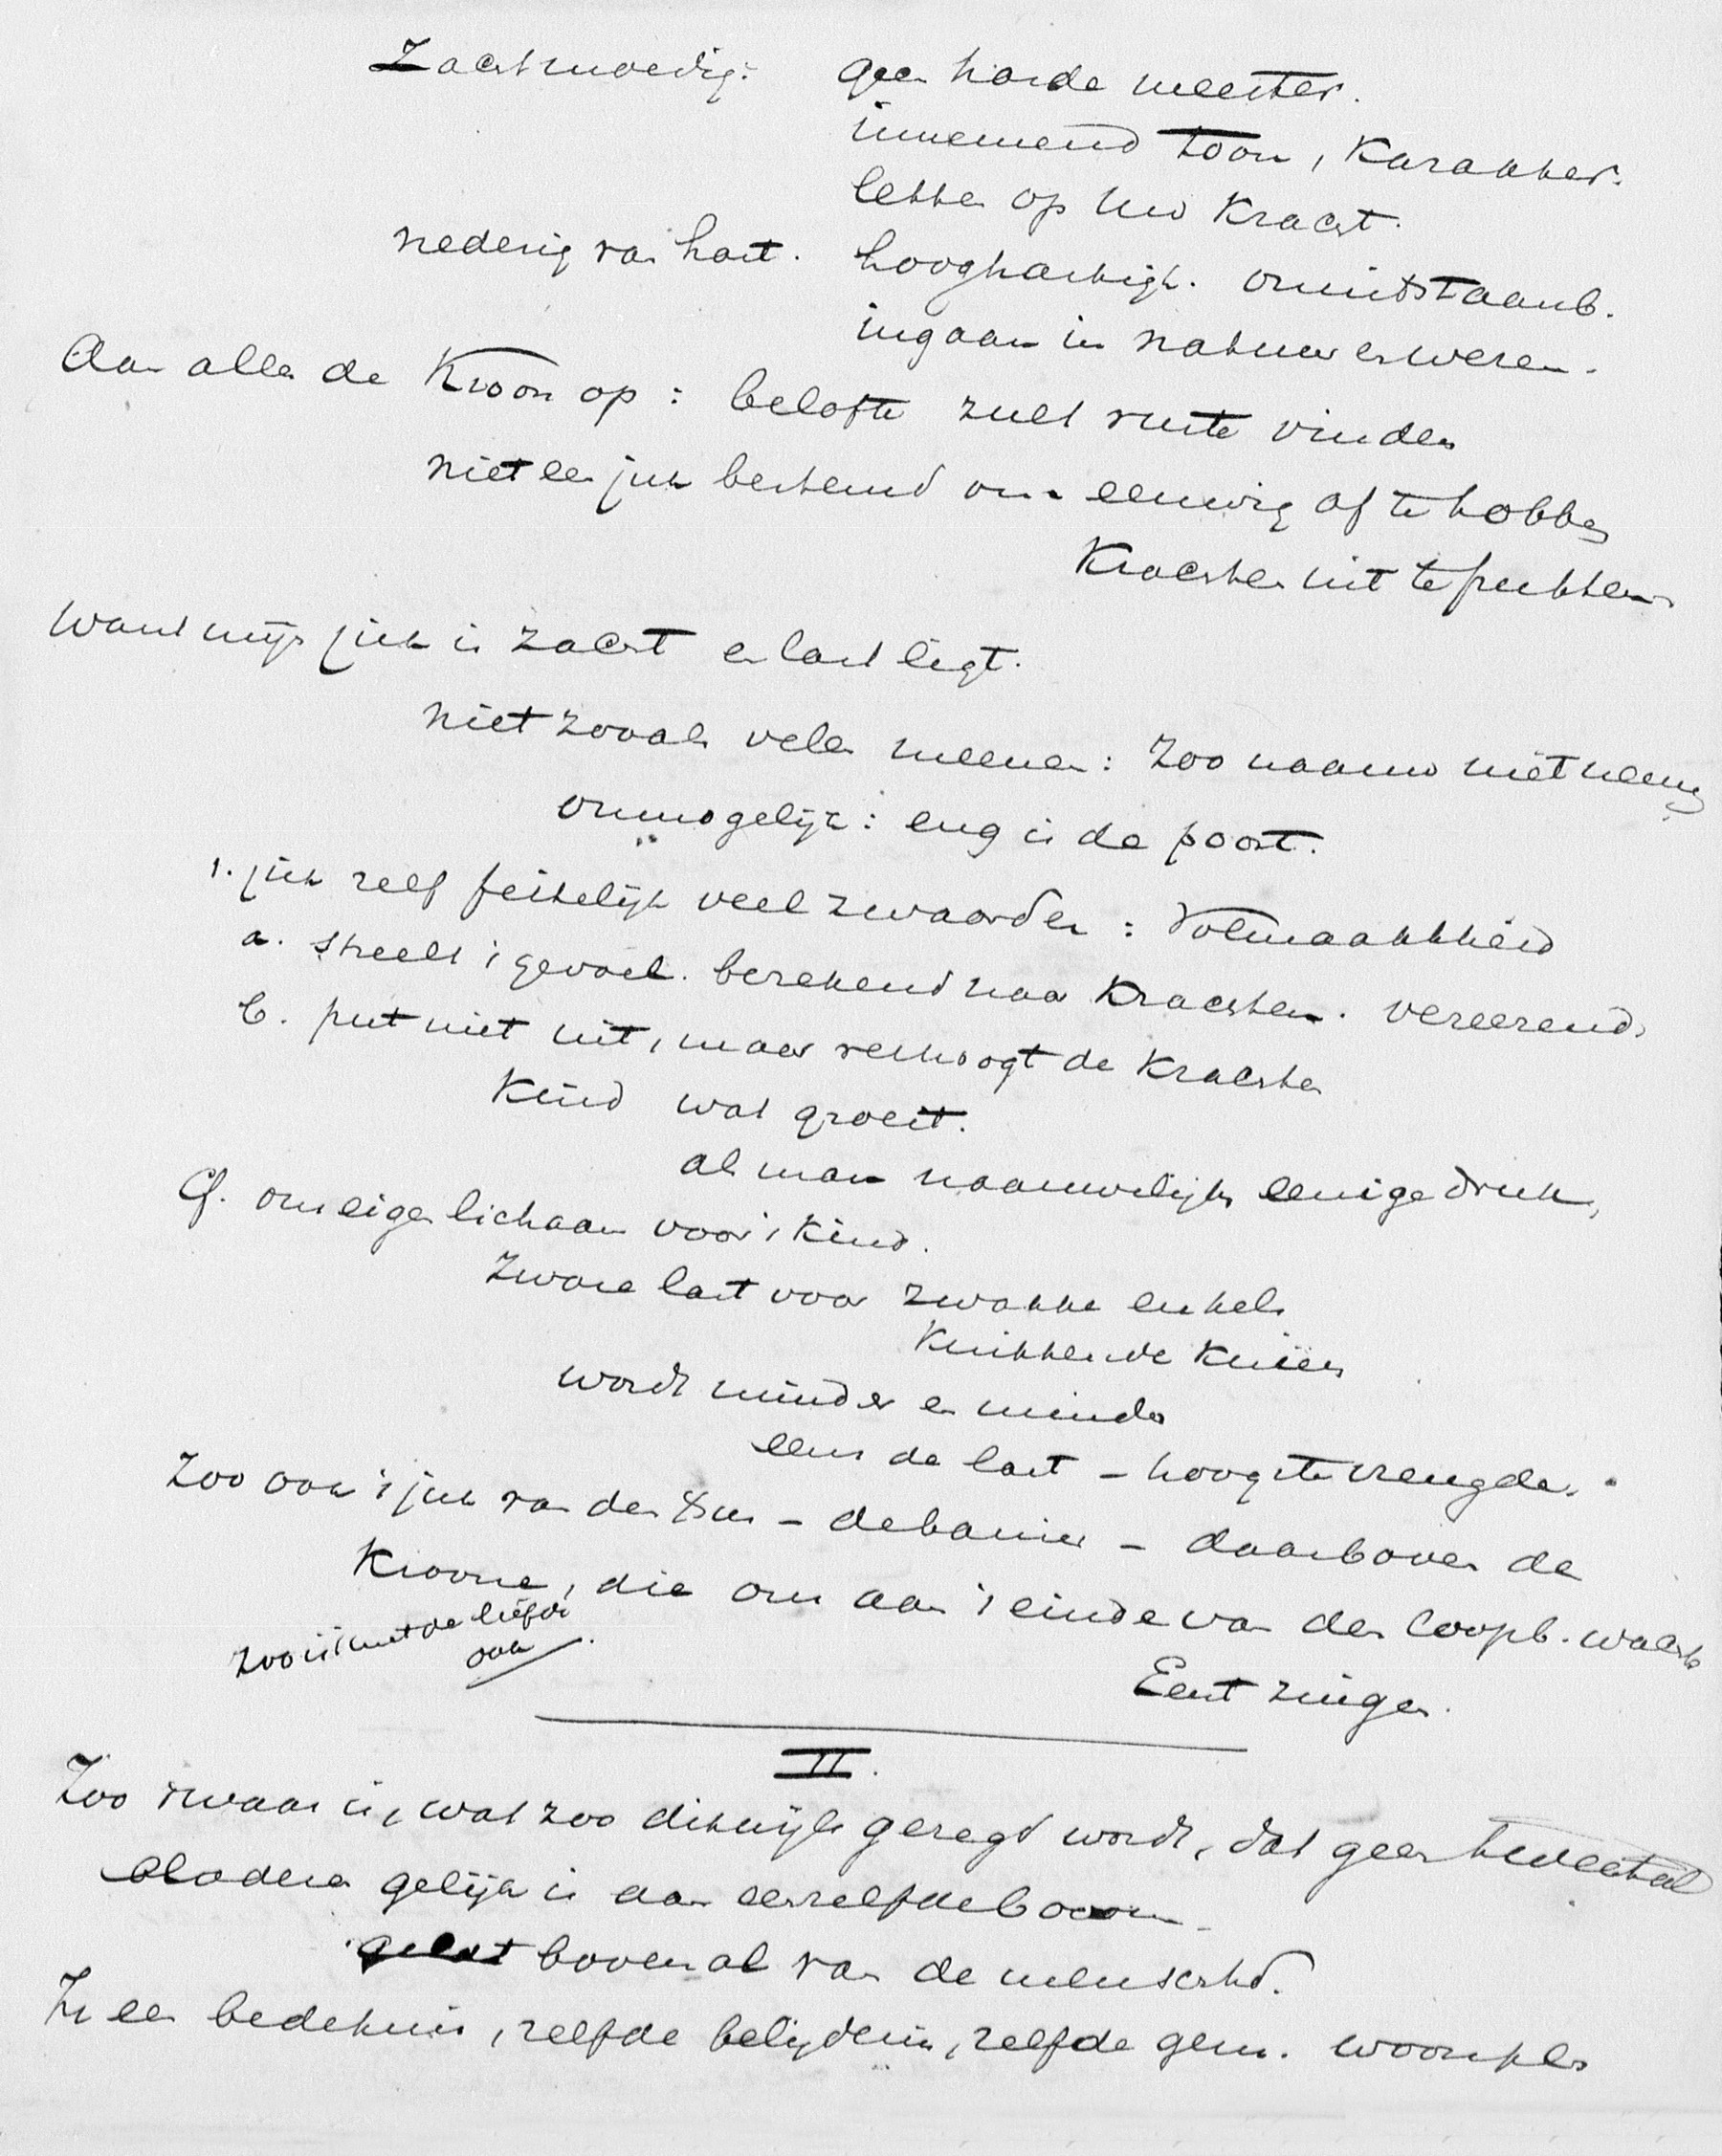 Zachtmoedig: geen harde meester.
innemend toon, karakter.
letten op uw kracht.
nederig van hart. hooghartigh. onuitstaanb.
ingaan in natuur en wezen.
Aan allen de kroon op: belofte zult ruste vinden
niet een juk bestemd om u eeuwig af te tobben
krachten uit te putten
Want mijn juk is zacht en last ligt.
niet zooals velen meenen: zoo naauw niet nemen
onmogelijk: eng is de poort.
1. juk zelf feitelijk veel zwaarder: Volmaaktheid
a. streelt 't gevoel. berekend naar krachten. vereerend.
b. put niet uit, maar verhoogt de krachten
Kind wat groeit.
als man naauwelijks eenige druk,
Cf. ons eigen lichaam voor 't kind.
Zware last voor zwakke enkels
knikkende knieën
wordt minder en minder
eens de last – hoogste vreugde.
Zoo ook 't juk van den Heer – de banier – daarboven de
Kroone, die ons aan 't einde van den loopb. wacht
Zoo is 't met de liefde
ook.
Eent zingen.
II.
Zoo waar is, wat zoo dikwijls gezegd wordt, dat geen tweetal
bladeren gelijk is aan eenzelfde boom
geldt bovenal van de menschhd.
In een bedehuis, zelfde belijdenis, zelfde gem. woonplts